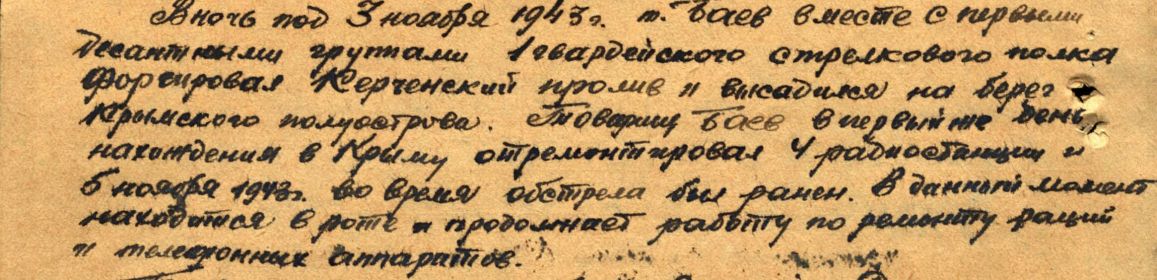 В ночь под 3 ноября 1943 г. т. Баев вместе с первыми
десантными группами 1 гвардейского стрелкового полка
форсировал Керченский пролив и высадился на берег
Крымского полуострова. Товарищ Баев в первый же день
нахождения в Крыму отремонтировал 4 радиостанции и
5 ноября 1943 г. во время обстрела был ранен. В данный момент
находится в роте и продолжает работу по ремонту раций
и телефонных аппаратов.